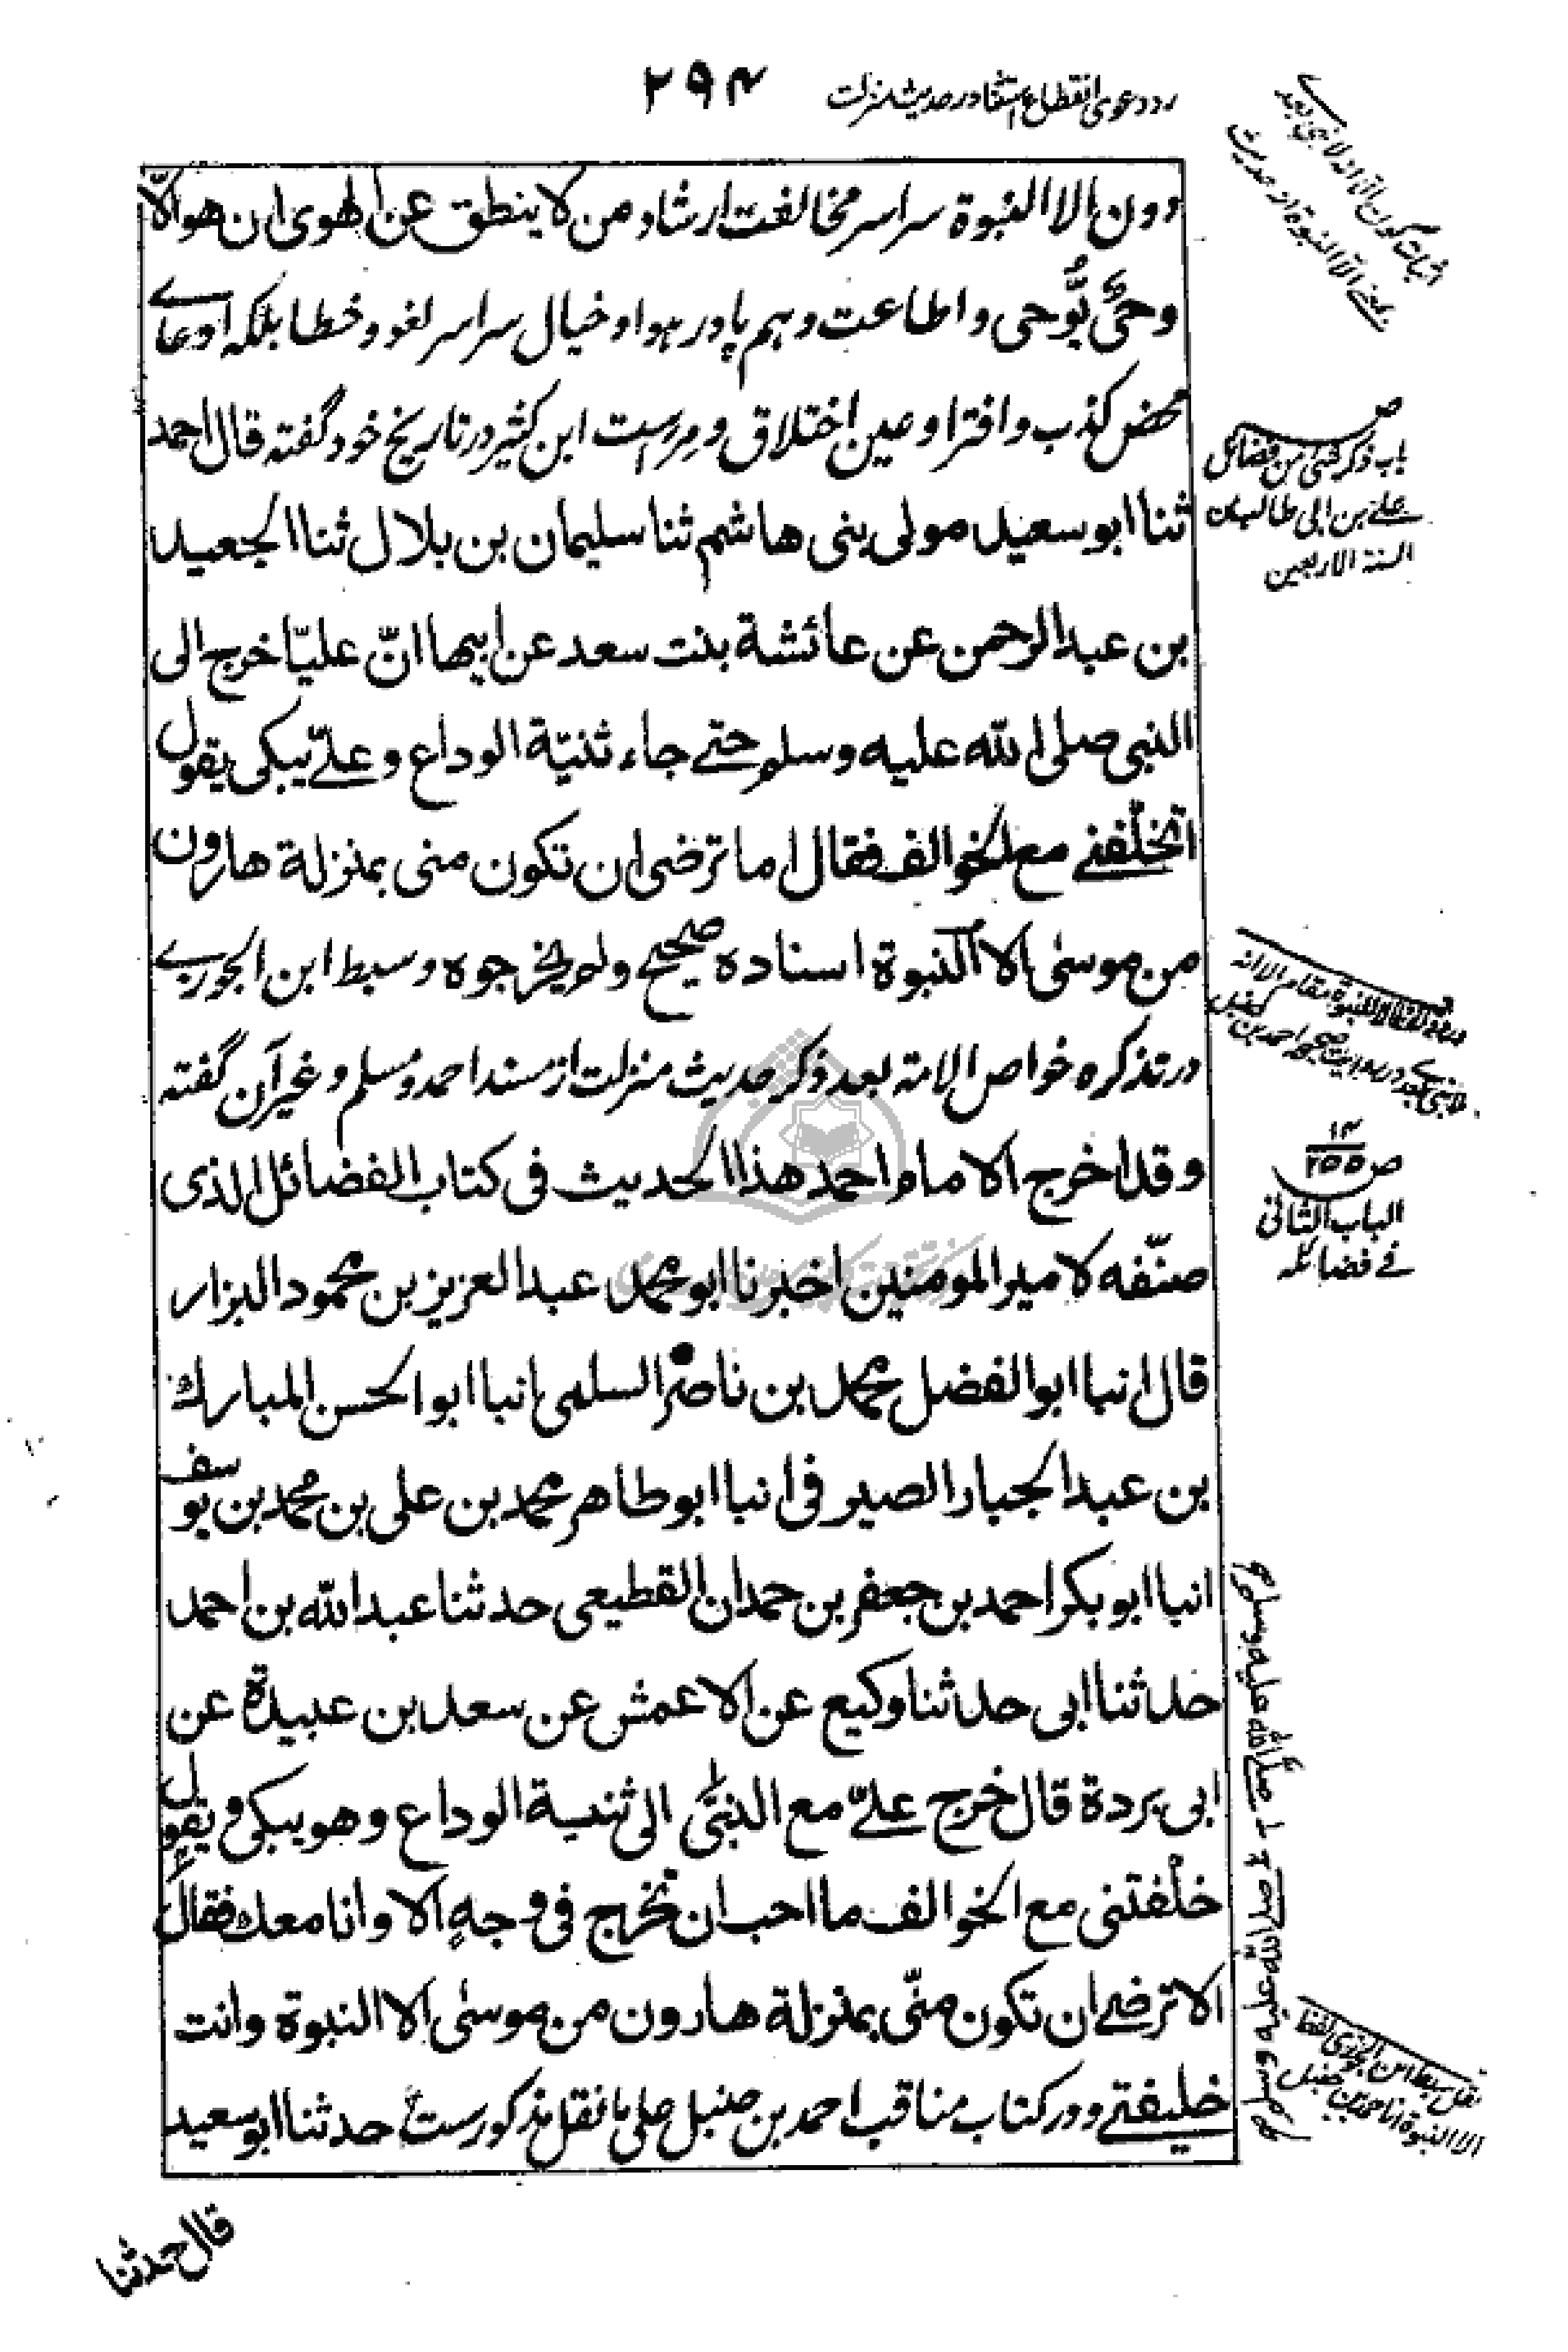 ۲۹۴
رد دعوی انقطاع استثنا در حدیث منزلت
دون الا النبوة سراسر مخالفت ارشاد من لا ینطق عن الهوی ان هو الّا
وحیٌ یُّوحی و اطاعت وهم پا در هوا و خیال سراسر لغو و خطا بلکه ادعاے
محض کذب و افترا و عین اختلاق و مراست ابن کثیر در تاریخ خود گفته قال احمد
ثنا ابو سعید مولی بنی هاشم ثنا سلیمان بن بلال ثنا الجعید
بن عبد الرحمن عن عائشة بنت سعد عن ابیها انّ علیّا خرج الی
النبی صلی الله علیه وسلم حتے جاء ثنیّة الوداع و علےّ یبکی یقول
اتخلّفنے مع الخوالف فقال اما ترضی ان تکون منی بمنزلة هارون
من موسیٰ الا النبوة اسناده صحیح ولم یخرجوه و سبط ابن الجوزے
در تذکره خواص الامة بعد ذکر حدیث منزلت از مسند احمد و مسلم و غیر آن گفته
وقد اخرج الامام احمد هذا الحدیث فی کتاب الفضائل الذی
صنّفه لامیر المومنین اخبرنا ابو محمد عبد العزیز بن محمود البزار
قال انبا ابو الفضل محمد بن ناصر السلمی انبا ابو الحسن المبارک
بن عبد الجبار الصیرفی انبا ابو طاهر محمد بن علی بن محمد بن یوسف
انبا ابو بکر احمد بن جعفر بن حمدان القطیعی حدثنا عبد الله بن احمد
حدثنا ابی حدثنا وکیع عن الاعمش عن سعد بن عبیدة عن
ابی بردة قال خرج علےّ مع النبیّ الی ثنیة الوداع وهو یبکی و یقول
خلّفتنی مع الخوالف ما احب ان تخرج فی وجهٍ الا وانا معك فقال
الا ترضے ان تکون منّی بمنزلة هارون من موسیٰ الا النبوة وانت
خلیفتے و در کتاب مناقب احمد بن حنبل علی ما نقل مذکورست حدثنا ابو سعید
قال حدثنا
ص
باب ذکر شئ من فضائل
علے بن ابی طالب من
السنة الاربعین
ص ۱۴/۲۵۵
الباب الثانی
فے فضائله
نقل سبط ابن الجوزی لفظ
الا النبوة از احمد بن حنبل